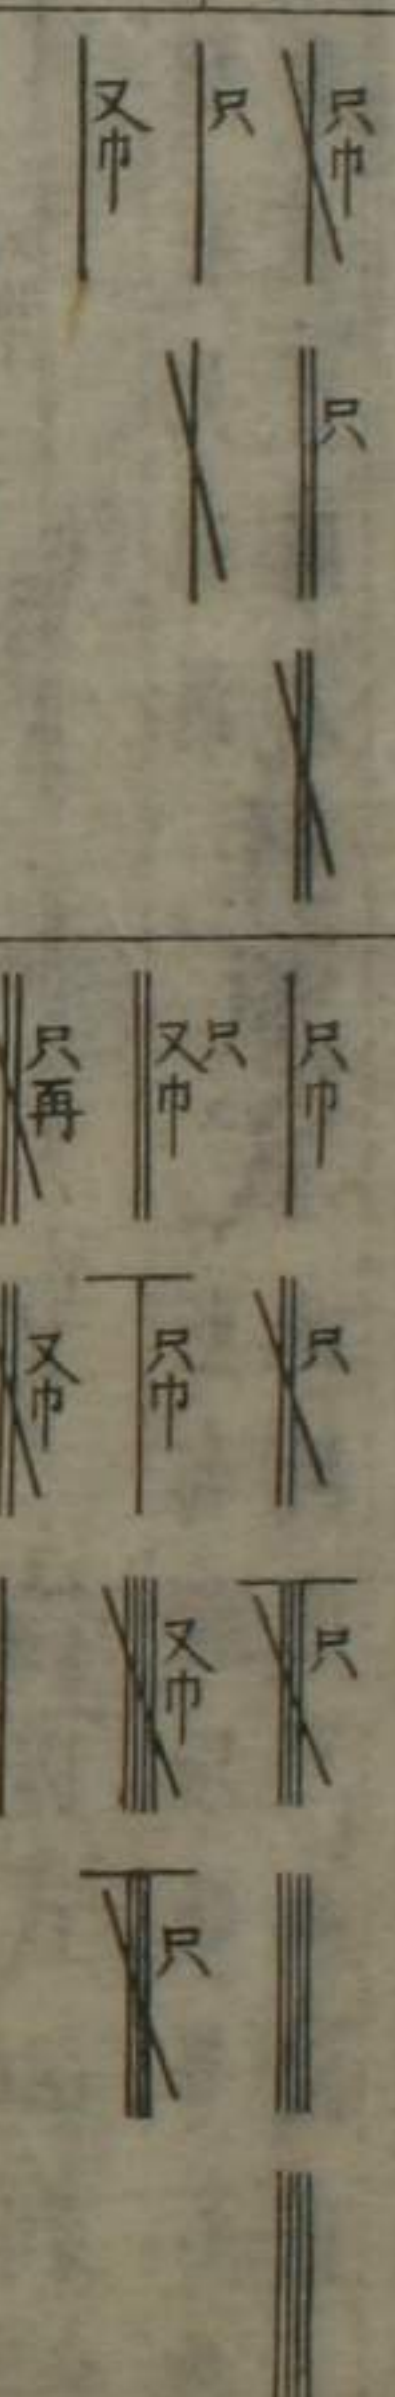 只巾
只
只
又巾
只巾
只
只
只
又巾
只巾
又巾
只
只再
又巾